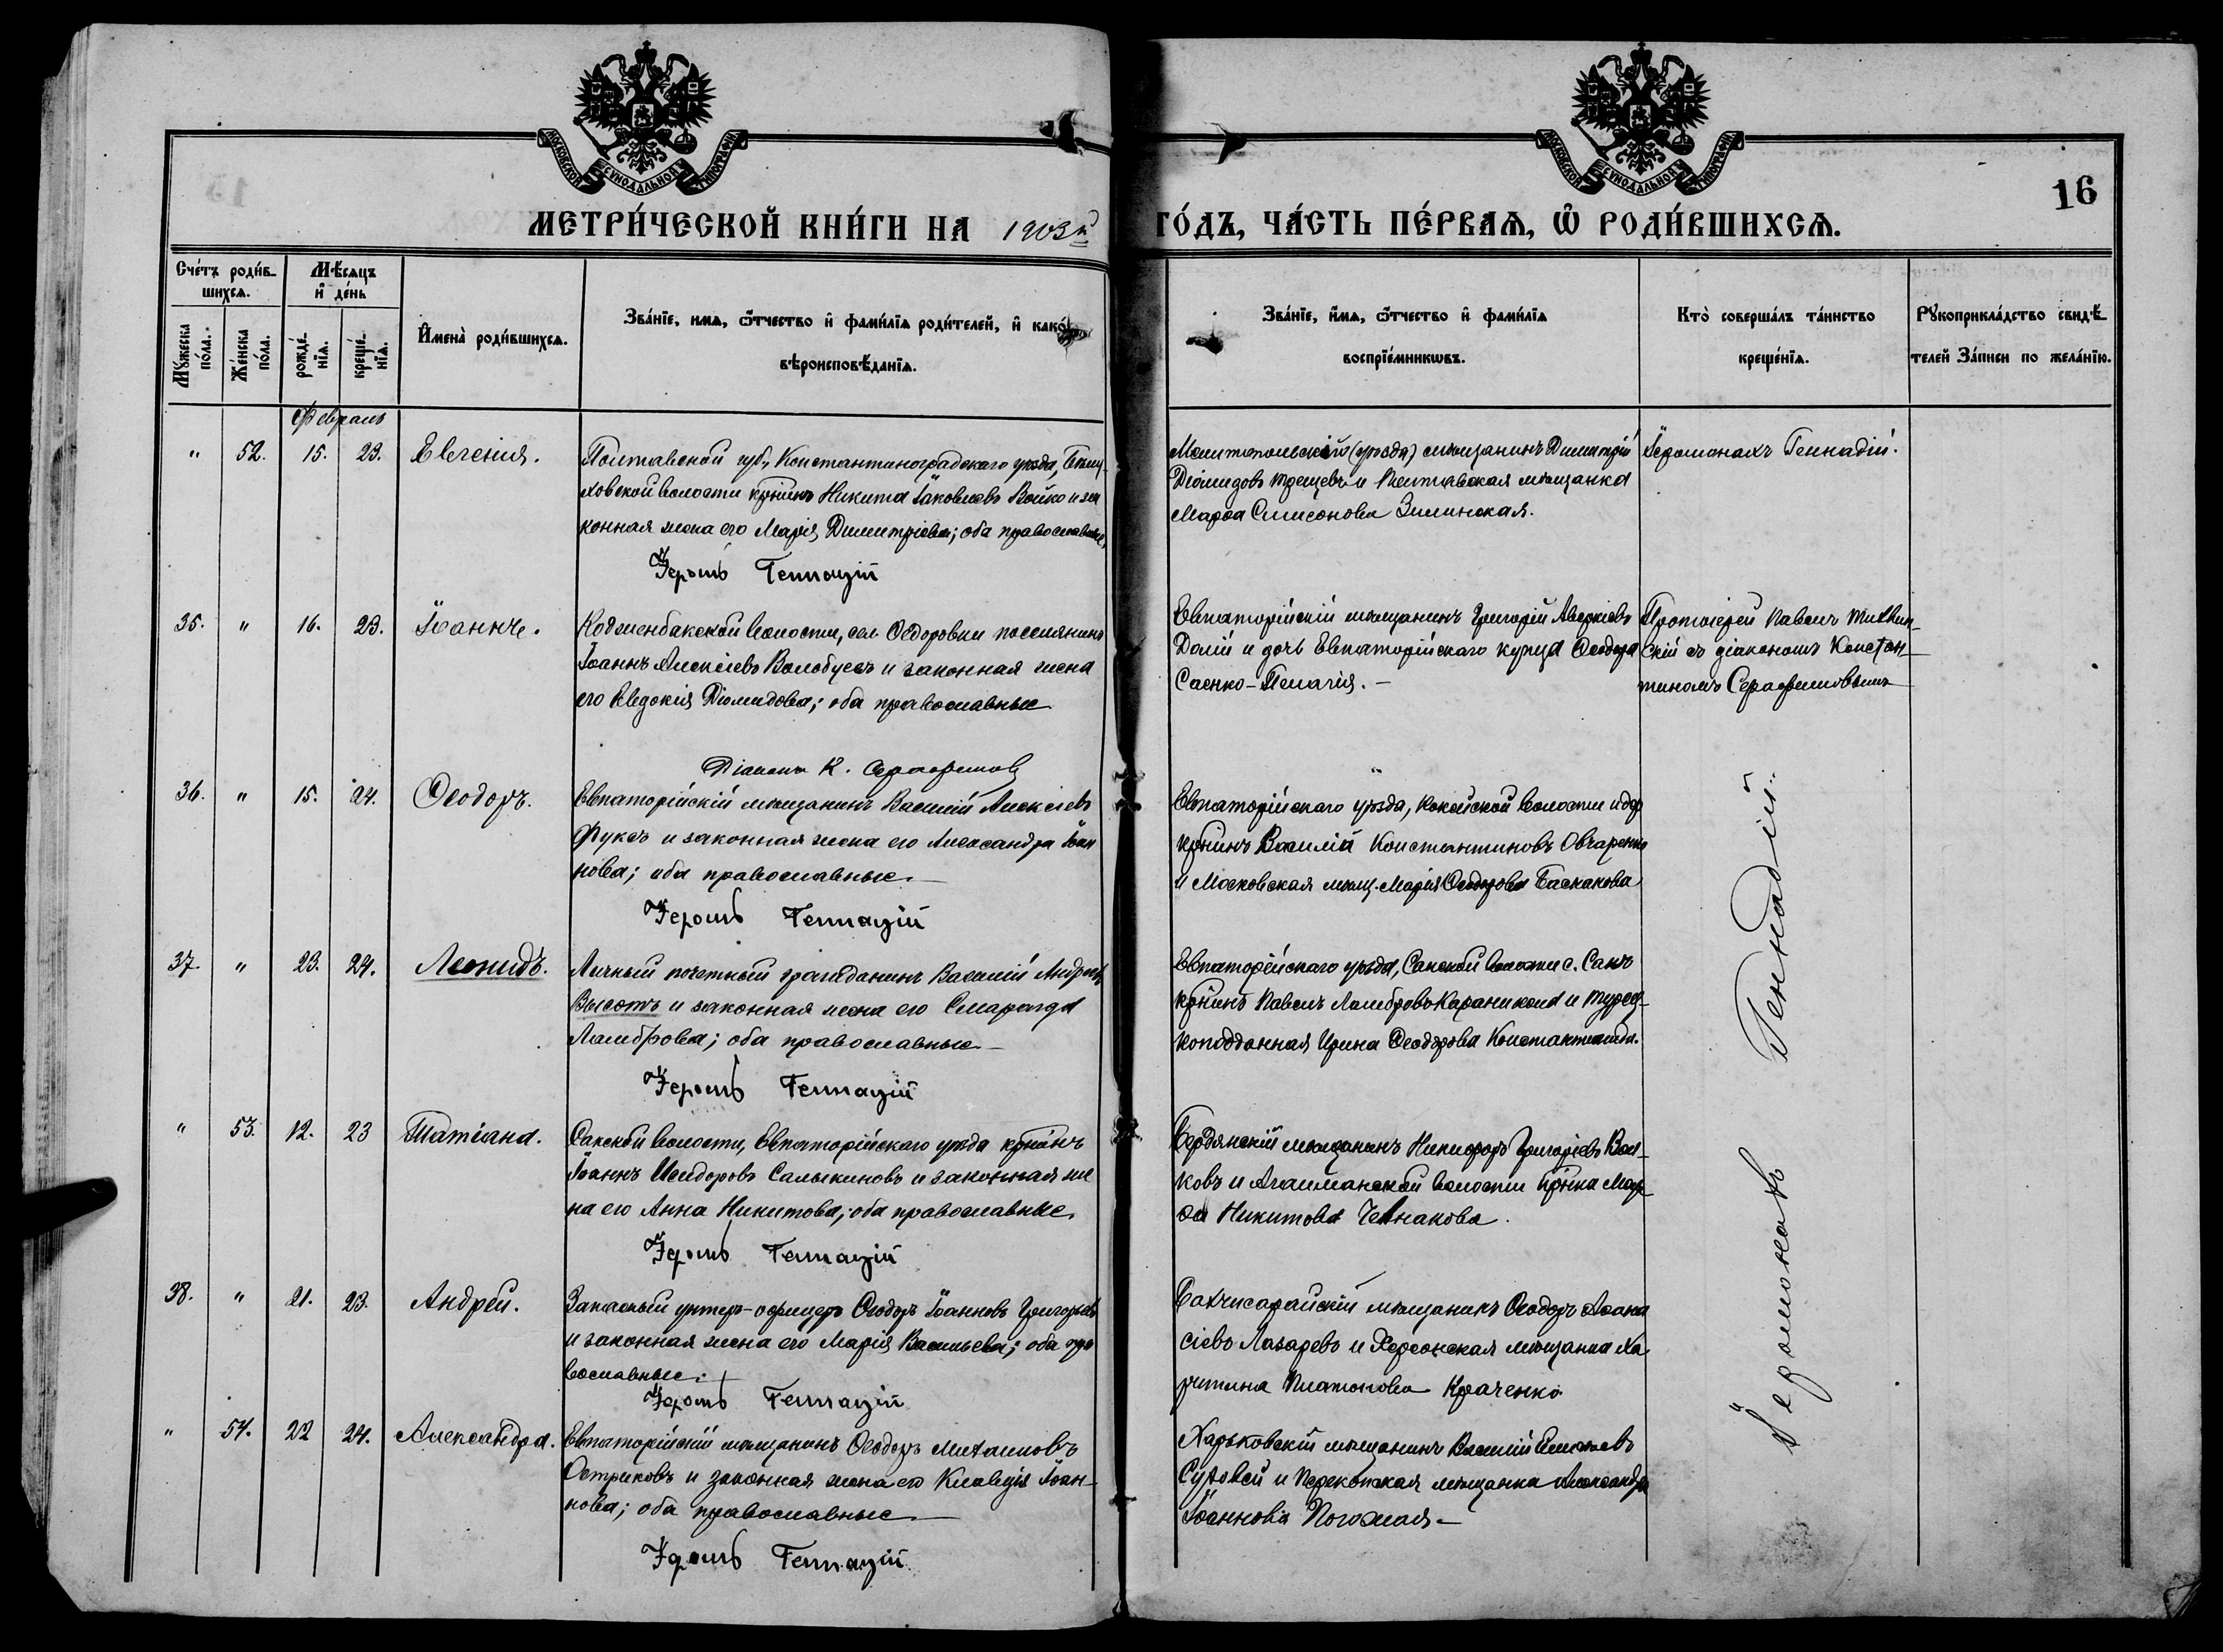 МОСКОВСКОЙ СУНОДАЛЬНОЙ ТИПОГРАФІИ
МОСКОВСКОЙ СУНОДАЛЬНОЙ ТИПОГРАФІИ
16
МЕТРИ́ЧЕСКОЙ КНИ́ГИ НА 1903й ГО́ДЪ, ЧА́СТЬ ПЕ́РВАѦ, Ѽ РОДИ́ВШИХСѦ.
Сче́тъ роди́в-
шихсѧ.
Мѣ́сѧцъ
и҆ де́нь
Мꙋ́жеска
по́ла.
Же́нска
по́ла.
рожде́-
нїѧ.
креще́-
нїѧ.
И҆мена̀ роди́вшихсѧ.
Зва́нїе, имѧ, ѻ҆́тчество и҆ фами́лїѧ роди́телей, и҆ како́гѡ
вѣроисповѣ́данїѧ.
Зва́нїе, и҆́мѧ, ѻ҆́тчество и҆ фами́лїѧ
воспрїе́мникѡвъ.
Кто̀ соверша́лъ та́инство
креще́нїѧ.
Рꙋкоприкла́дство свидѣ́-
телей За́писи по жела́нїю.
Февраль
" 52. 15. 23. Евгенія.
Полтавской губ., Константиноградскаго уѣзда,
ховской волости крнинъ Никита Іаковлевъ Бойко и за
конная жена его Марія Димитріева; оба православные
Іером Геннадій
Мелитопольскій (уѣзда) мѣщанинъ Димитрій
Діомидовъ и Полтавская мѣщанка
Марѳа Симеонова Зилинская.
Іеромонахъ Геннадій.
35. " 16. 23. Іоаннъ.
волости, сел. Ѳедоровки поселянинъ
Іоаннъ Алексіевъ Волобуевъ и законная жена
его Евдокія Діомидова; оба православные
Діаконъ К. Серафимов
Евпаторійскій мѣщанинъ Григорій Аверкіевъ
Долій и дочь Евпаторійскаго купца Ѳеодора
Саенко-Пелагія.-
Протоіерей Павелъ
скій съ діакономъ Констан-
тиномъ Серафимовымъ
36. " 15. 24. Ѳеодоръ.
Евпаторійскій мѣщанинъ Василій Алексіевъ
Фуксъ и законная жена его Александра Іоан
нова; оба православные.
Іером Геннадій
Евпаторійскаго уѣзда, волости и дер
крнинъ Василій Константиновъ Овчаренко
и Московская мѣщ. Марія Ѳеодорова Баскакова
37. " 23. 24. Леонидъ.
Личный почетный гражданинъ Василій Андреевъ
Высотъ и законная жена его Смарагда
Ламброва; оба православные
Іером Геннадій
Евпаторійскаго уѣзда, Сакской волости с. Сакъ
крнинъ Павелъ Ламбровъ Караникола и турец-
коподданная Ирина Ѳеодорова
" 53. 12. 23 Татіана.
Сакской волости, Евпаторійскаго уѣзда крнинъ
Іоаннъ Исидоровъ Салыкиновъ и законная же
на его Анна Никитова; оба православные.
Іером Геннадій
Бердянскій мѣщанинъ Никифоръ Григоріевъ Вол-
ковъ и Агайманской волости крнка Мар-
ѳа Никитова
38. " 21. 23. Андрей.
Запасный унтеръ-офицеръ Ѳеодоръ Іоанновъ Григорьевъ
и законная жена его Марія Васильева; оба пра
вославные.
Іером Геннадій
Бахчисарайскій мѣщанинъ Ѳеодоръ Аѳана
сіевъ Лазаревъ и Херсонская мѣщанка Ха
ритина Платонова Краченко
" 54. 22 24. Александра.
Евпаторійскій мѣщанинъ Ѳеодоръ Михаиловъ
Остриковъ и законная жена его Клавдія Іоан-
нова; оба православные
Іером Геннадій
Харьковскій мѣщанинъ Василій
Суховей и Перекопская мѣщанка Александра
Іоаннова Погожая-
Іеромонахъ Геннадій.